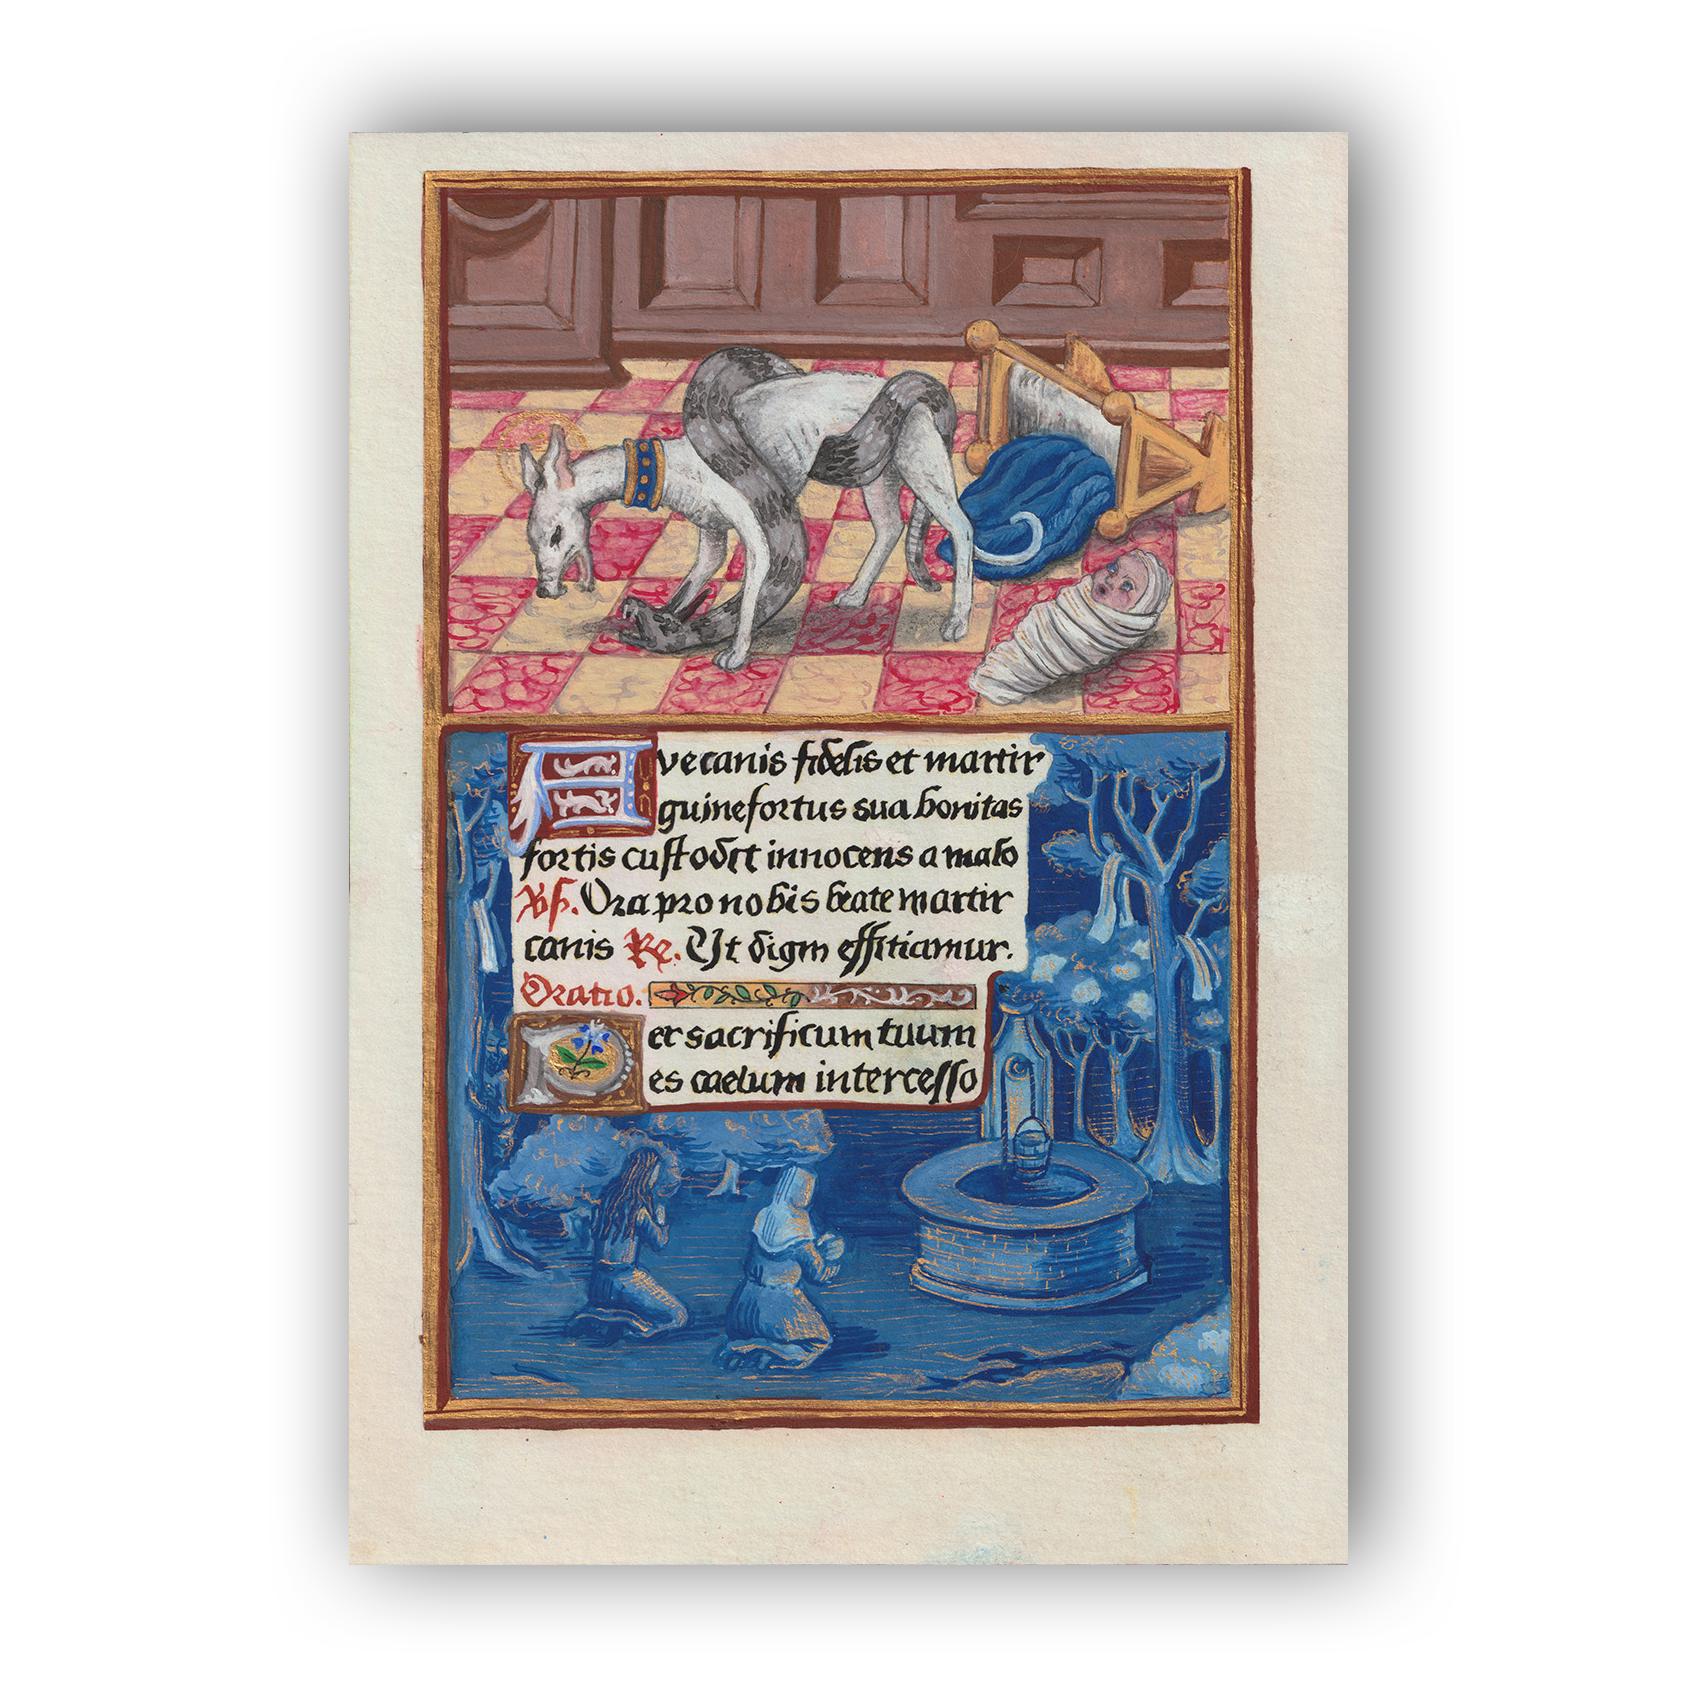 Ave canis fidelis et martir
guinefortus sua bonitas
fortis custodit innocens a malo
Vs. Ora pro nobis beate martir
canis Re. Ut digm effitiamur.
Oratio.
Per sacrificum tuum
es caelum intercesso